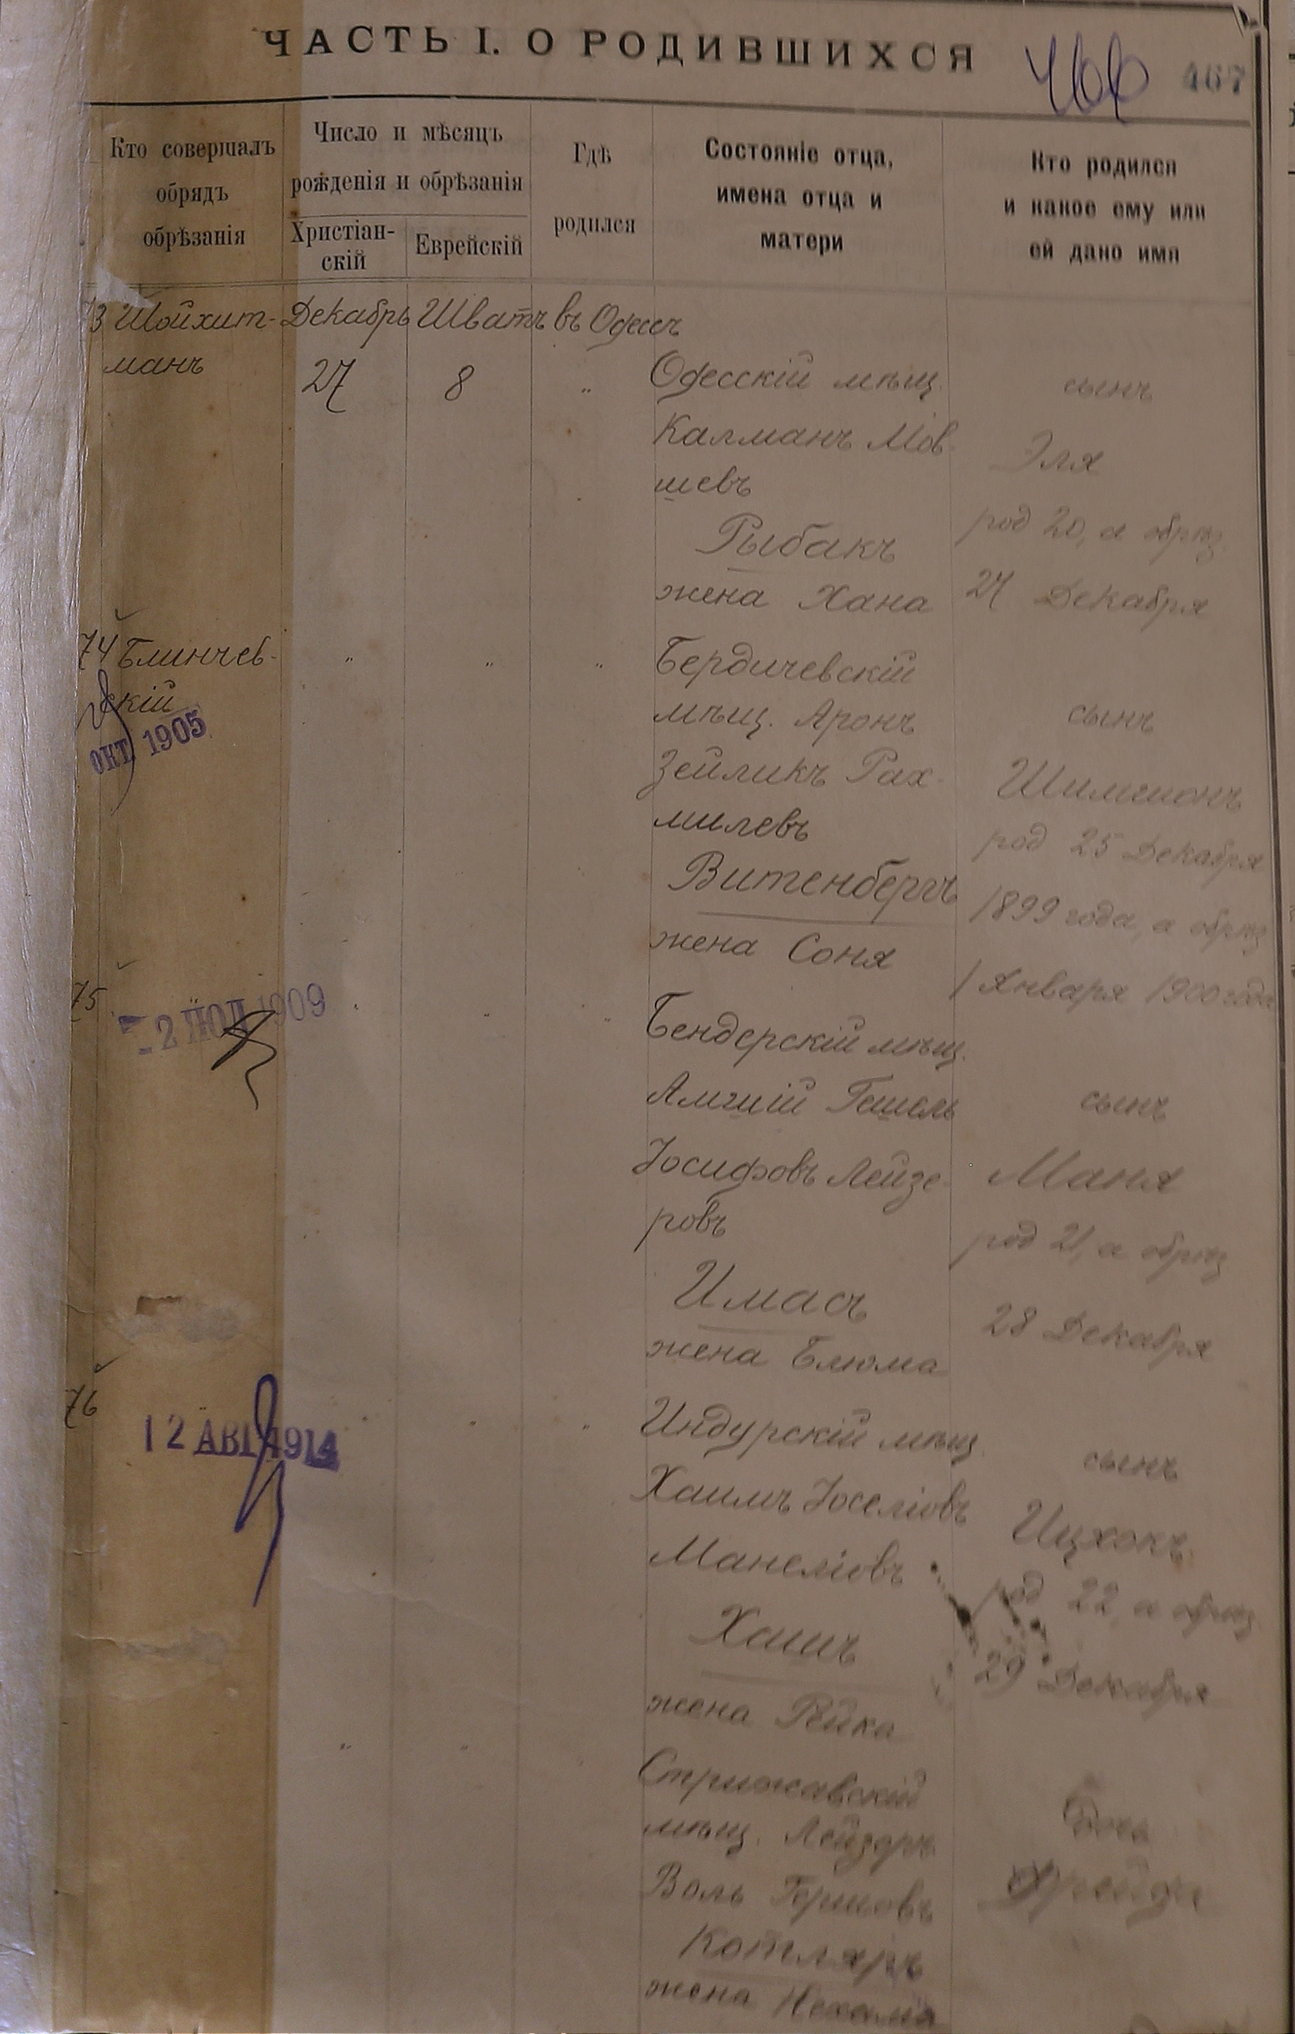 ЧАСТЬ I. О РОДИВШИХСЯ
466 467
Кто совершалъ
обрядъ
обрѣзанія
Число и мѣсяцъ
рожденія и обрѣзанія
Христіан-
скій
Еврейскій
Гдѣ
родился
Состояніе отца,
имена отца и
матери
Кто родился
и какое ему или
ей дано имя
73 Шойхит-
манъ
Декабрь
27
Шватъ
8
въ Одессѣ
"
Одесскій мѣщ.
Калманъ Мов-
шевъ
Рыбакъ
жена Хана
сынъ
Эля
род 20, а обрѣз.
27 Декабря
74 Блинчев-
скій
ОКТ 1905
" " "
Бердичевскій
мѣщ. Аронъ
Зейликъ Рах-
милевъ
Витенбергъ
жена Соня
сынъ
Шимшонъ
род 25 Декабря
1899 года, а обрѣз
1 Января 1900 года
75
2 1909
" " "
Бендерскій мѣщ.
Гешель
Іосифовъ Лейзе-
ровъ
Имасъ
жена Блюма
сынъ
Маня
род 21, а обрѣз
28 Декабря
76
12 АВГ 1914
" " "
Индурскій мѣщ.
Хаимъ Іоселіовъ
Манеліовъ
Хашъ
жена Рейка
сынъ
Ицхокъ
род 22, а обрѣз.
29 Декабря
" "
Стрижавскій
мѣщ. Лейзоръ
Воль Гершовъ
Котляръ
жена Нехама
дочь